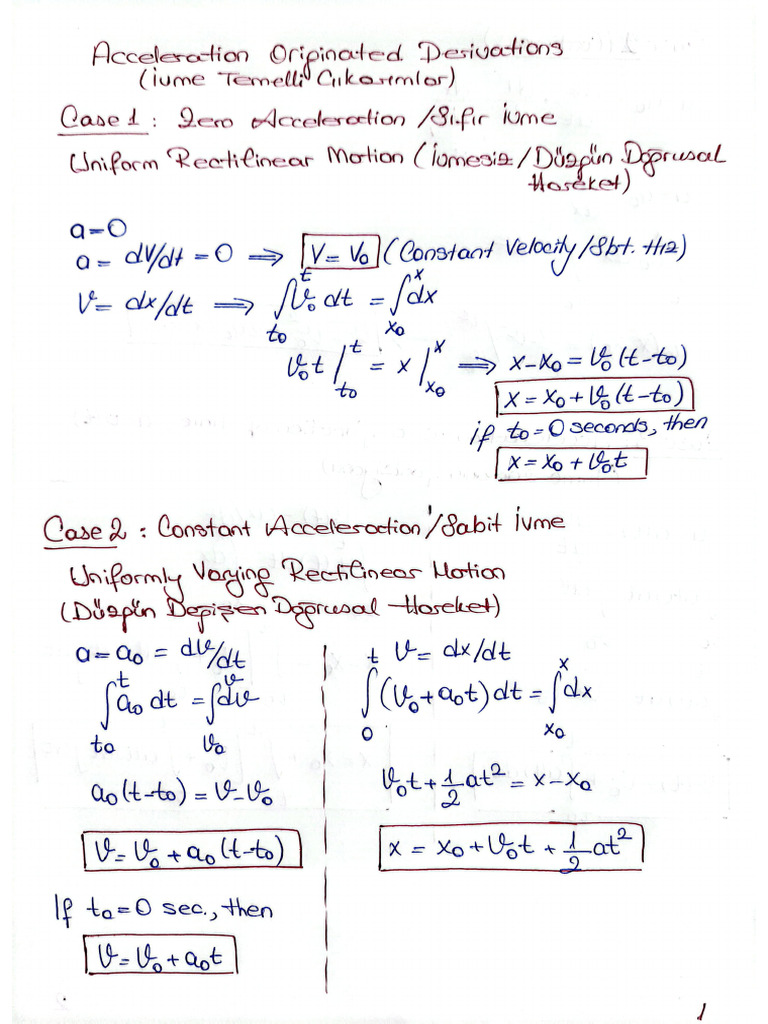 Acceleration Originated Derivations
(İvme Temelli Çıkarımlar)
Case 1: Zero Acceleration / Sıfır ivme
Uniform Rectilinear Motion (İvmesiz / Düzgün Doğrusal
Hareket)
a=0
a= dV/dt = 0 ⟹ V= V₀ (Constant Velocity / Sbt. Hız)
V= dx/dt ⟹ ∫_{t₀}^{t} V₀ dt = ∫_{x₀}^{x} dx
V₀t |_{t₀}^{t} = x |_{x₀}^{x} ⟹ x-x₀ = V₀ (t-t₀)
x = x₀ + V₀ (t-t₀)
if t₀=0 seconds, then
x = x₀ + V₀t
Case 2 : Constant Acceleration / Sabit İvme
Uniformly Varying Rectilinear Motion
(Düzgün Değişen Doğrusal Hareket)
a=a₀ = dV/dt
∫_{t₀}^{t} a₀ dt = ∫_{V₀}^{V} dV
a₀(t-t₀) = V-V₀
V=V₀ + a₀(t-t₀)
If t₀=0 sec., then
V=V₀ + a₀t
V= dx/dt
∫_{0}^{t} (V₀+a₀t) dt = ∫_{x₀}^{x} dx
V₀t + 1/2 at² = x-x₀
x = x₀ + V₀t + 1/2 at²
1